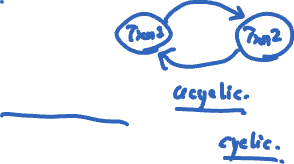 Txn1 Txn2
acyclic.
cyclic.